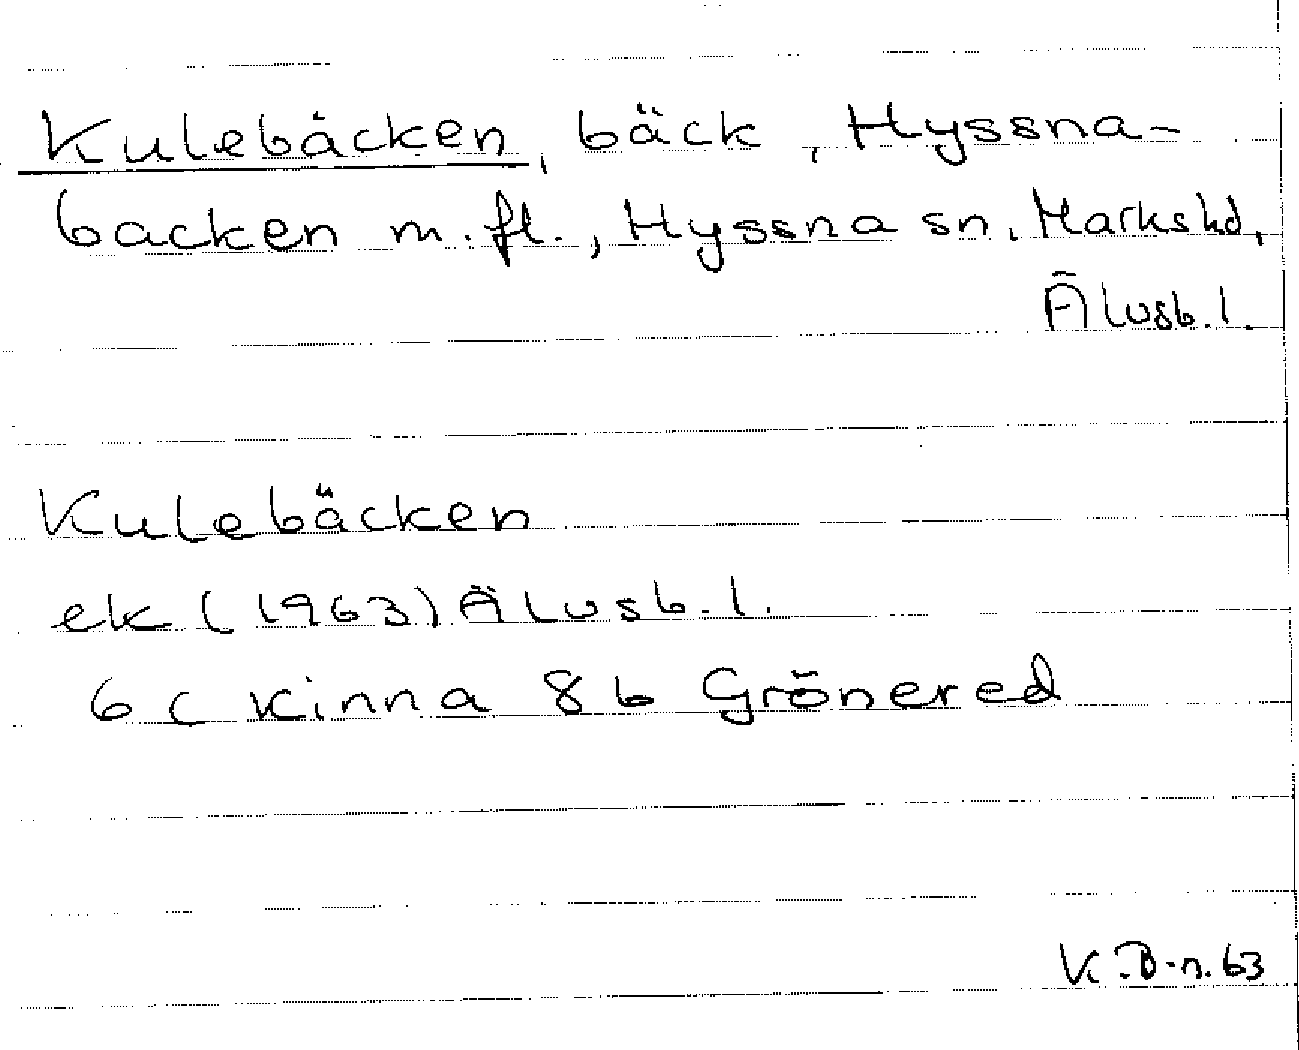 Kulebäcken, bäck, Hyssna-
backen m.fl., Hyssna sn, Marks hd,
Älvsb.l.
Kulebäcken
ek (1963) Älvsb.l.
6 C Kinna 8 b Grönered
K.B-n. 63